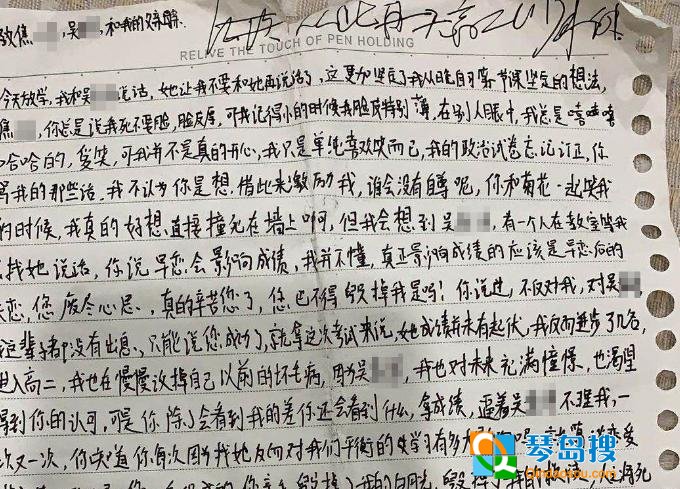 致焦，吴，和我的
RELIVE THE TOUCH OF PEN HOLDING
今天放学，我和吴说话，她让我不要和她再说话了，这更加坚定了我从晚自习第节课坚定的想法，
焦，你总是说我死不要脸，脸皮厚，可我记得小的时候我脸皮特别薄，在别人眼中，我总是嘻嘻嘻
哈哈的，傻笑，可我并不是真的开心，我只是单纯喜欢笑而已，我的政治试卷忘记订正，你
骂我的那些话，我不认为你是想借此来激励我，谁会没有自尊呢，你和菊花一起笑我
的时候，我真的好想直接撞死在墙上啊，但我会想到吴，有一个人在教室等我
找她说话，你说早恋会影响成绩，我并不懂，真正影响成绩的应该是早恋后的
失恋，您废尽心思，真的辛苦您了，您巴不得毁掉我是吗！你说过，不仅对我，对吴
这辈子都没有出息，只能说您成功了，就拿这次考试来说，她成绩并未有起伏，我反而进步了几名，
进入高二，我也在慢慢改掉自己以前的坏毛病，因为吴，我也对未来充满憧憬，也渴望
得到你的认可，可是你除了会看到我的差你还会看到什么，拿成绩，逼着吴不理我，一
次又一次，你知道你每次因为我找她反而对我们平衡的学习有多
毁掉了我的
琴岛搜
Qindaosou.com